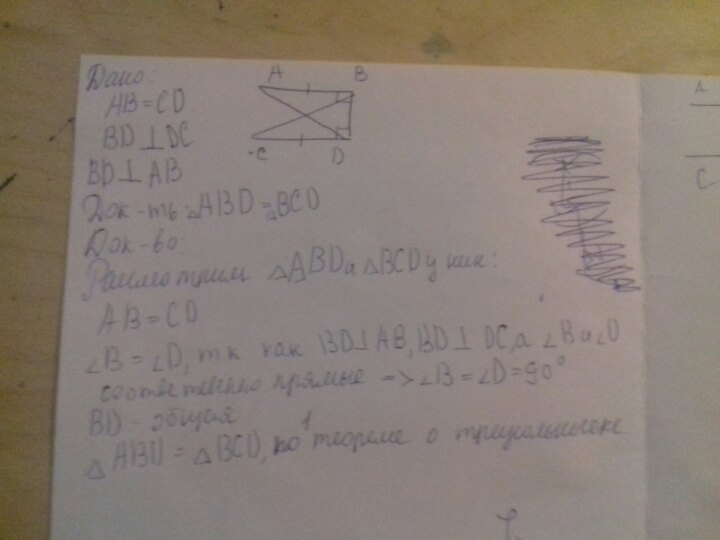 Дано:
AB = CD
BD ⊥ DC
BD ⊥ AB
Док-ть △ABD = △BCD
Док-во
Рассмотрим △ABD и △BCD у них:
AB = CD
∠B = ∠D, т.к как BD ⊥ AB, BD ⊥ DC, а ∠B и ∠D
соответственно прямые => ∠B = ∠D = 90°
BD - общая
△ABD = △BCD, по 1 теореме о треугольнике
A B
C D
A
C